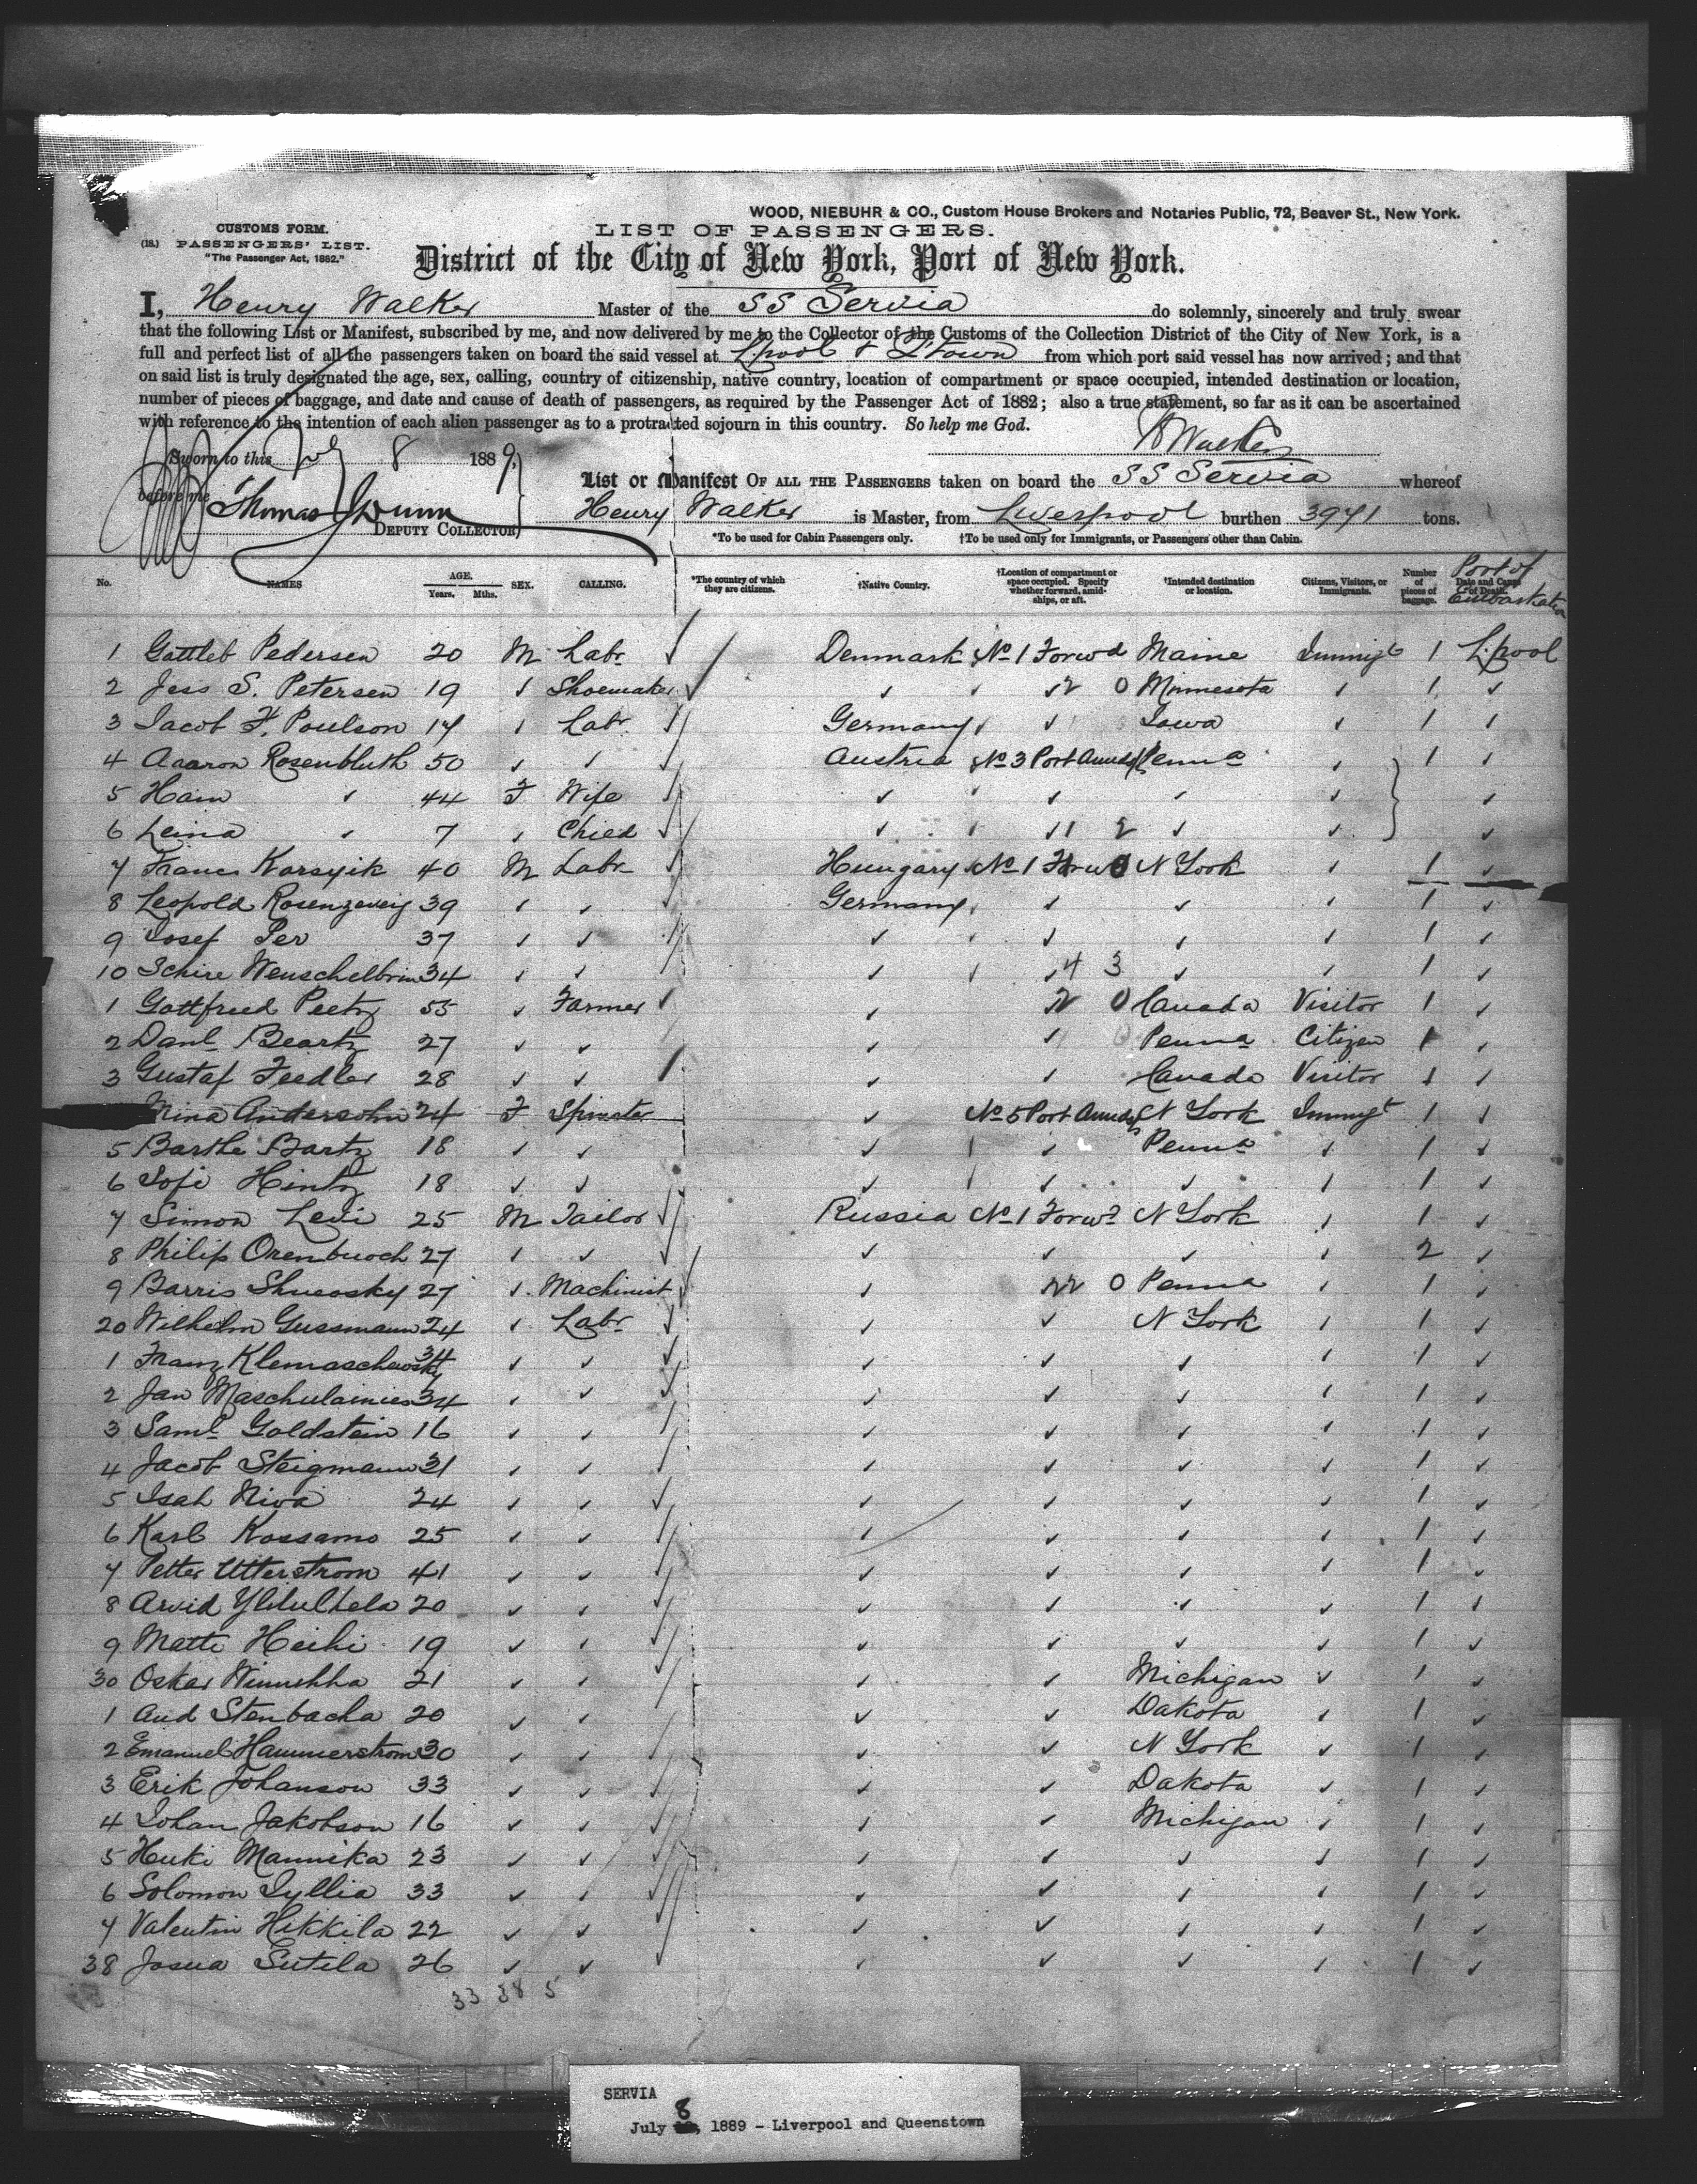 WOOD, NIEBUHR & CO., Custom House Brokers and Notaries Public, 72, Beaver St., New York.
CUSTOMS FORM.
LIST OF PASSENGERS.
(18.) PASSENGERS' LIST.
"The Passenger Act, 1882."
District of the City of New York, Port of New York.
I, Henry Walker Master of the SS Servia do solemnly, sincerely and truly swear
that the following List or Manifest, subscribed by me, and now delivered by me to the Collector of the Customs of the Collection District of the City of New York, is a
full and perfect list of all the passengers taken on board the said vessel at L'pool & Q'town from which port said vessel has now arrived; and that
on said list is truly designated the age, sex, calling, country of citizenship, native country, location of compartment or space occupied, intended destination or location,
number of pieces of baggage, and date and cause of death of passengers, as required by the Passenger Act of 1882; also a true statement, so far as it can be ascertained
with reference to the intention of each alien passenger as to a protracted sojourn in this country. So help me God.
H Walker
Sworn to this July 8 1889,
List or Manifest OF ALL THE PASSENGERS taken on board the SS Servia whereof
before me Thomas J Dunn
Henry Walker is Master, from Liverpool burthen 3971 tons.
DEPUTY COLLECTOR
*To be used for Cabin Passengers only. †To be used only for Immigrants, or Passengers other than Cabin.
No. NAMES AGE. Years. Mths. SEX. CALLING. *The country of which they are citizens. †Native Country. †Location of compartment or space occupied. Specify whether forward, amidships, or aft. †Intended destination or location. Citizens, Visitors, or Immigrants. Number of pieces of baggage. Date and Cause of Death. Port of Embarkation
1 Gottleb Pedersen 20 M Labr ✓ Denmark No 1 Forwd Maine Immigt 1 L'pool
2 Jess S. Petersen 19 ✓ Shoemaker ✓ ✓ ✓ 2 0 Minnesota ✓ 1 ✓
3 Jacob F. Poulson 17 ✓ Labr Germany ✓ ✓ Iowa ✓ 1 ✓
4 Aaaron Rosenbluth 50 ✓ ✓ Austria No 3 Port Amids Penna ✓ 1 ✓
5 Ham ✓ 44 F Wife ✓ ✓ ✓ ✓ ✓ ✓ ✓
6 Leina ✓ 7 ✓ Child ✓ ✓ ✓ 11 2 ✓ ✓ ✓
7 Franc Karsyik 40 M Labr Hungary No 1 Forwd N York ✓ 1 ✓
8 Leopold Rosenzweig 39 ✓ ✓ Germany ✓ ✓ ✓ ✓ 1 ✓
9 Josef Per 37 ✓ ✓ ✓ ✓ ✓ ✓ ✓ 1 ✓
10 Schire Wenschelbrim 34 ✓ ✓ ✓ ✓ ✓ 4 3 ✓ ✓ 1 ✓
1 Gottfried Peetz 55 ✓ Farmer ✓ 2 0 Canada Visitor 1 ✓
2 Danl Beartz 27 ✓ ✓ ✓ ✓ Penna Citizen 1 ✓
3 Gustaf Feedler 28 ✓ ✓ ✓ ✓ Canada Visitor 1 ✓
Mina Andersohn 24 F Spinster ✓ No 5 Port Amids N York Immigt 1 ✓
5 Barthe Bartz 18 ✓ ✓ ✓ ✓ Penna ✓ 1 ✓
6 Sofi Hintz 18 ✓ ✓ ✓ ✓ ✓ ✓ 1 ✓
7 Simon Levi 25 M Tailor Russia No 1 Forwd N York ✓ 1 ✓
8 Philip Orenbuoch 27 ✓ ✓ ✓ ✓ ✓ ✓ 2 ✓
9 Barris Shucosky 27 ✓ Machinist ✓ 22 0 Penna ✓ 1 ✓
20 Wilhelm Gussmann 24 ✓ Labr ✓ ✓ N York ✓ 1 ✓
1 Franz Klemaschewsky 34 ✓ ✓ ✓ ✓ ✓ ✓ 1 ✓
2 Jan Maschulainies 34 ✓ ✓ ✓ ✓ ✓ ✓ 1 ✓
3 Saml Goldstein 16 ✓ ✓ ✓ ✓ ✓ ✓ 1 ✓
4 Jacob Steigmann 31 ✓ ✓ ✓ ✓ ✓ ✓ 1 ✓
5 Isah Niva 24 ✓ ✓ ✓ ✓ ✓ ✓ 1 ✓
6 Karl Kossamo 25 ✓ ✓ ✓ ✓ ✓ ✓ 1 ✓
7 Petter Utterstrom 41 ✓ ✓ ✓ ✓ ✓ ✓ 1 ✓
8 Arvid 20 ✓ ✓ ✓ ✓ ✓ ✓ 1 ✓
9 Matti Heihi 19 ✓ ✓ ✓ ✓ ✓ ✓ 1 ✓
30 Oskar 21 ✓ ✓ ✓ ✓ Michigan ✓ 1 ✓
1 And Stenbacka 20 ✓ ✓ ✓ ✓ Dakota ✓ 1 ✓
2 Emanuel Hammerstrom 30 ✓ ✓ ✓ ✓ N York ✓ 1 ✓
3 Erik Johanson 33 ✓ ✓ ✓ ✓ Dakota ✓ 1 ✓
4 Johan Jakobson 16 ✓ ✓ ✓ ✓ Michigan ✓ 1 ✓
5 Heiki Mannika 23 ✓ ✓ ✓ ✓ ✓ ✓ 1 ✓
6 Solomon Syllia 33 ✓ ✓ ✓ ✓ ✓ ✓ 1 ✓
7 Valentin Hikkila 22 ✓ ✓ ✓ ✓ ✓ ✓ 1 ✓
38 Josua Sutela 26 ✓ ✓ ✓ ✓ ✓ ✓ 1 ✓
33 38 5
SERVIA
July 8, 1889 - Liverpool and Queenstown